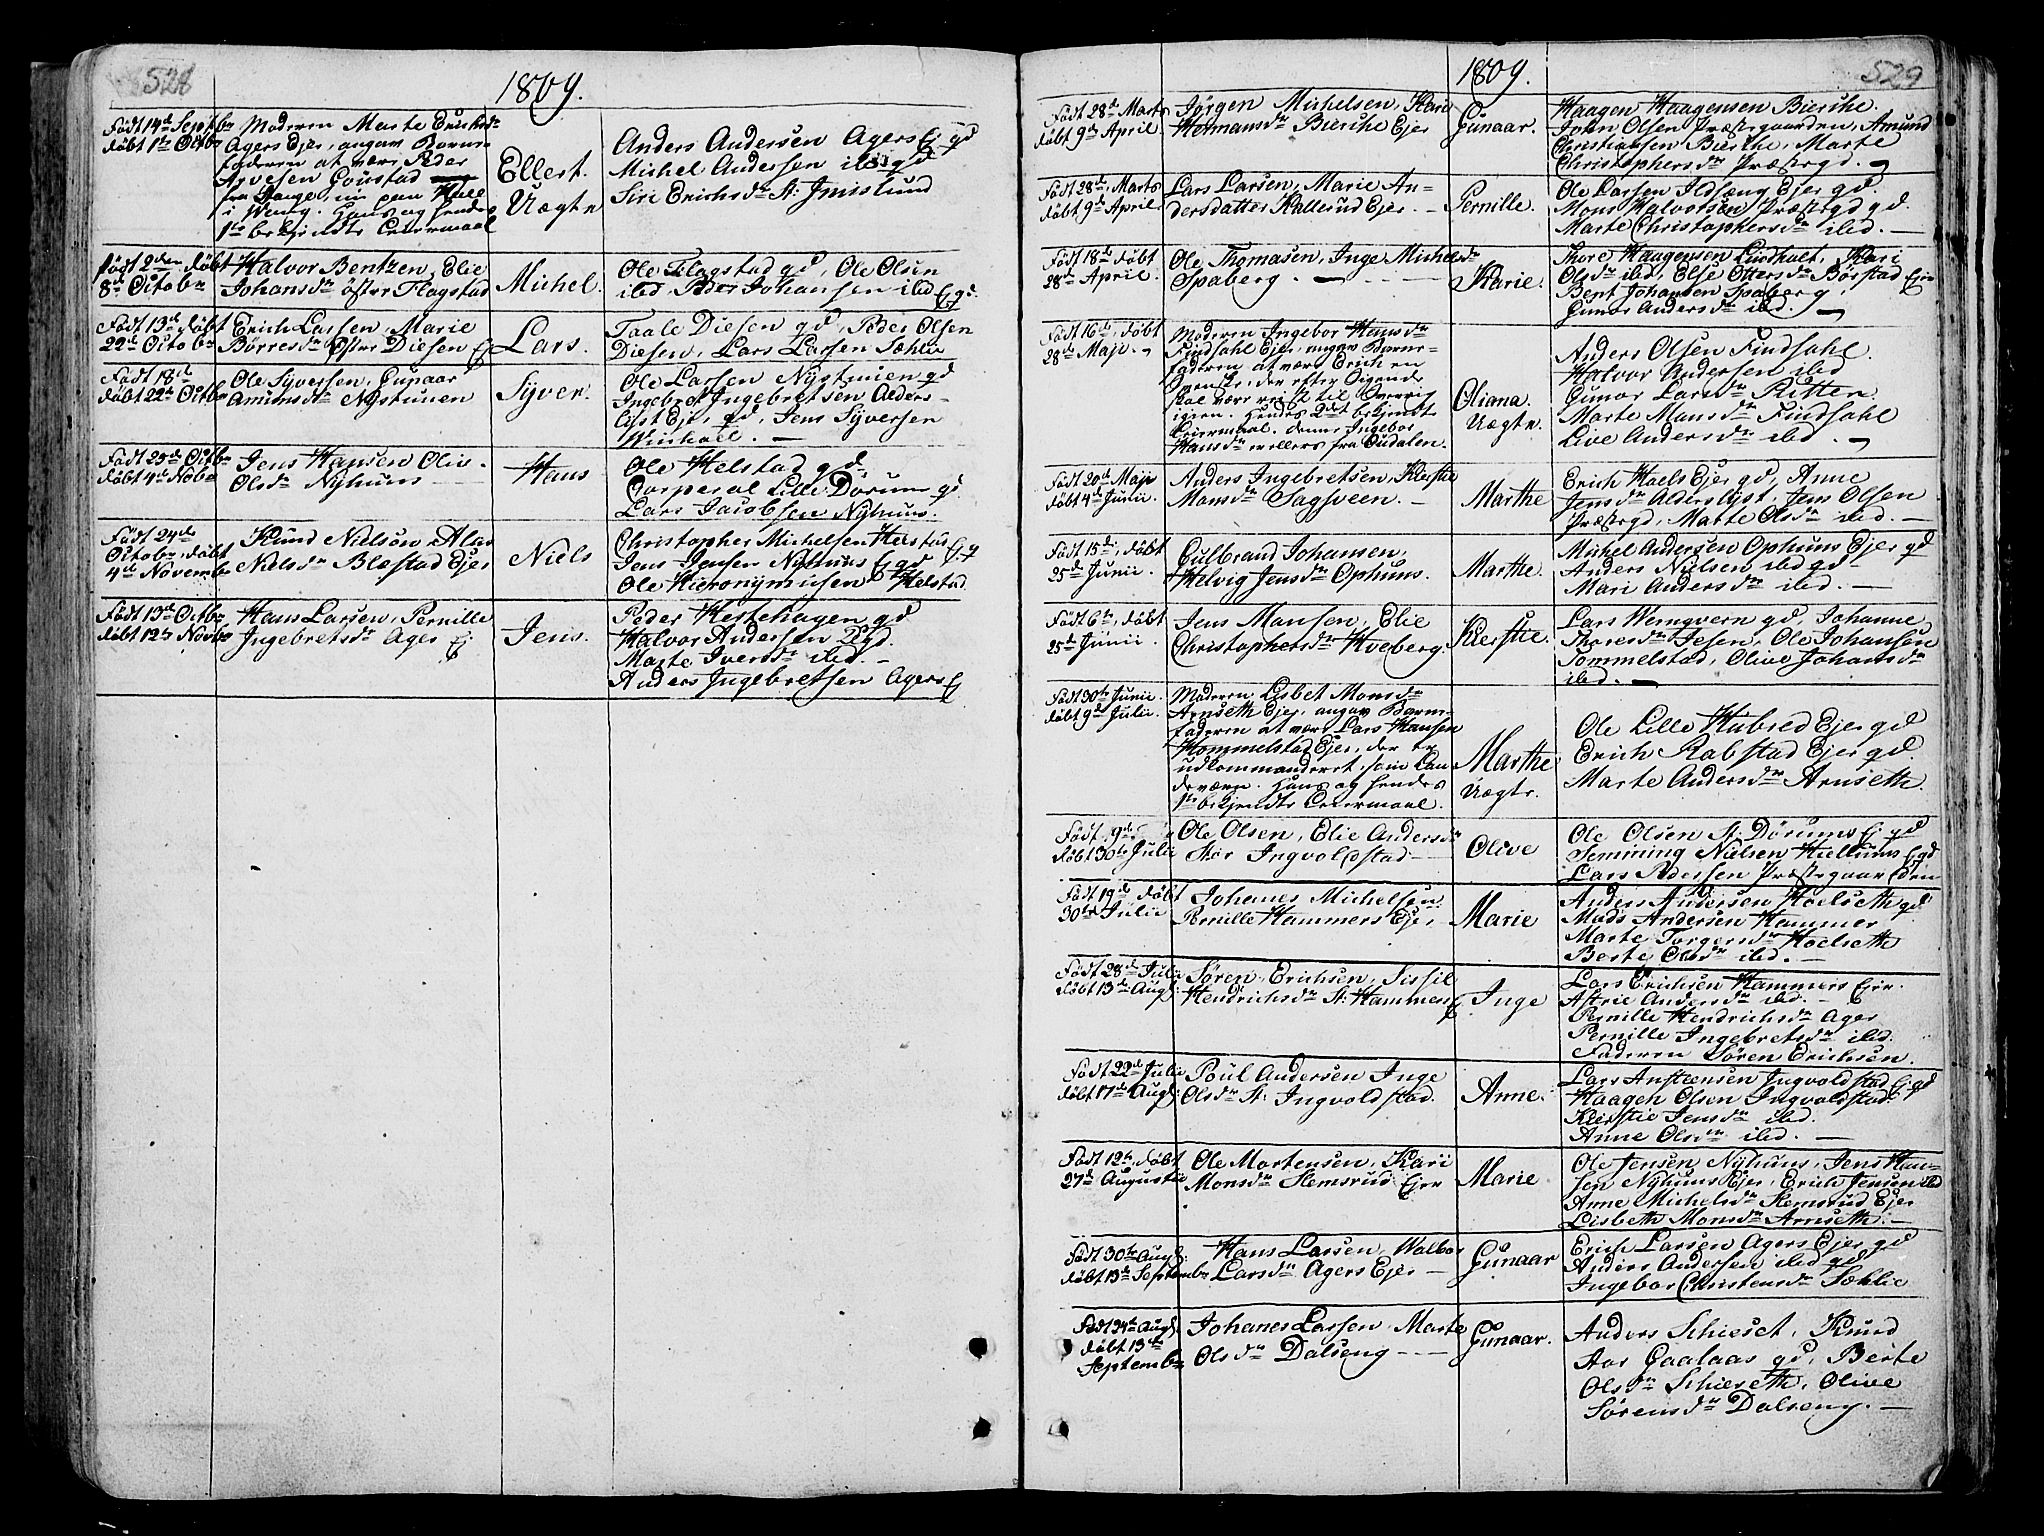 528
1809.
Født 14d Septbr
døbt 1te Octbr
Moderen Marte Erichsdr
Agers Ejer, angav Barne-
faderen at være Peder
Arvesen Goustad
fra Vange, nu paa Hoel
i Weng. Hans og hendes
1te bekjendte Leiermaal
Ellert.
Uægte
Anders Andersen Agers Ej gd
Michel Andersen ibid gd
Siri Erichsdr St: Imislund
Født 2den døbt
8de Octobr
Halvor Bentzen, Elie
Johansdr öster Flagstad
Michel.
Ole Flagstad gd, Ole Olsen
ibid, Peder Johansen ibid Ej gd.
Født 13d døbt
22d Octobr
Erich Larsen, Marie
Börresdr Öster Diesen Ej
Lars.
Taale Diesen gd, Peder Olsen
Diesen, Lars Larsen Sæhlie
Født 18d
døbt 22d Octbr
Ole Syversen, Gunaar
Amunsdr Nystuen
Syver.
Ole Larsen Nystuen gd
Ingebret Ingebretsen Alders-
lyst Ej, gd, Jens Syversen
Født 25d Octbr
døbt 4d Nobr
Jens Hansen Oliv
Olsdr Nyhuus
Hans
Ole Helstad gd
Corperal Lille Dörum gd
Lars Jacobsen Nyhuus.
Født 24d
Octobr, døbt
4d Novembr
Knud Nielsøn, Alas
Nielsdr Blæstad Ejer
Niels
Christopher Michelsen Helstad Ej gd
Jens Jensen Nyhuus Ej gd
Ole Hieronymusen Helstad
Født 13d Octbr
døbt 12te Novbr
Hans Larsen, Pernille
Ingebretsdr Ager Ej
Jens.
Peder Hestehagen gd
Halvor Andersen gd.
Marte Iversdr ibid. –
Anders Ingebretsen Agers Ej
529
1809.
Født 28d Marts
døbt 9de April
Jørgen Michelsen, Kari
Hermansdr Bierche Ejer
Gunaar.
Haagen Haagensen Bierche.
John Olsen Præstegaarden, Amund
Christiansen Bierche, Marte
Christophersdr Præstegd. –
Født 28d Marts
døbt 9d April
Lars Larsen, Marie An-
dersdatter Kallerud Ejer. –
Pernille.
Ole Larsen Ildsæng Ejer gd.
Mons Halvorsen Præstegd gd.
Marte Christophersdr ibid. –
Født 18d døbt
28d April
Ole Thomasen, Inge Michelsdr
Spaberg. –
Karie.
Thore Haagensen Lundhalt, Kari
Olsdr ibid, Else Ottersdr Børstad Ejer
Bent Johansen Spaberg,
Gunor Andersdr ibid. –
Født 16d, døbt
28d Maji. –
Moderen Ingebor Hansdr
Findsahl Ejer, angav Barne-
faderen at være Erich en
Svenske, der efter Sigende
skal være reist til Sverrig
igien. Hendes 2det bekjendte
Leiermaal. denne Ingebor
Hansdr er ellers fra Oudalen.
Oliana.
Uægte.
Anders Olsen Findsahl.
Halvor Andersen ibid
Gunor Larsdr Ritten
Marte Mansdr Findsahl
Live Andersdr ibid. –
Født 20d Maji
døbt 4d Junii.
Anders Ingebretsen, Kiersti
Monsdr Sagsveen.
Marthe
Erich Hoels Ejer gd, Anne
Jensdr Alderslyst, Jens Olsen
Præstegd, Marte Olsdr ibid. –
Født 15d, døbt
25d Junii.
Gulbrand Johansen,
Helvig Jensdr Ophuus.
Marthe.
Michel Andersen Ophuus Ejer gd
Anders Nielsen ibid gd
Mari Andersdr ibid. –
Født 6te, døbt
25d Junii.
Jens Monsen, Elie
Christophersdr Hveberg.
Kierstie.
Lars Wemgvern gd, Johanne
Thoresdr Jesen, Ole Johansen
Tommelstad, Olive Johansdr
ibid. –
Født 30te Junii.
døbt 9d Julii.
Moderen Lisbet Monsdr
Arnseth Ejer, angav Barne-
faderen at være Lars Hansen
Hommelstad Ejer, der er
udkommanderet som Lan-
deværn. Hans og hendes
1te bekjendte Leiermaal.
Marthe
Uægte.
Ole Lille Hubred Ejer gd
Erich Rabstad Ejer gd.
Marte Andersdr Arnseth.
Født 9d
døbt 30te Julii
Ole Olsen, Elie Andersdr
Stor Ingvoldstad –
Olive
Ole Olsen St: Dörums Ej gd
Semining Nielsen Hiellums Ej gd
Lars Pedersen Præstegaarden
Født 19d døbt
30te Julii
Johanes Michelsen
Pernille Hammers Ejer
Marie
Anders Andersen Hoelseth gd
Mads Andersen Hammer
Marte Torgersdr Hoelseth
Berte Olsdr ibid. –
Født 28d Julii
døbt 13d Aug:
Søren Erichsen, Sissil
Hendrichsdr St: Hammers Ej.
Inge
Lars Erichsen Hammers Ejer.
Astrie Andersdr ibid. –
Pernille Hendrichsdr Ager
Pernille Ingebretsdr ibid.
Faderen Søren Erichsen.
Født 22d Julii
døbt 17d Aug:
Poul Andersen Inge
Olsdr St: Ingvoldstad.
Anne.
Lars Anstensen Ingvoldstad Ej gd
Haagen Olsen Ingvoldstad.
Kierstie Jensdr ibid.
Anne Olsdr ibid. –
Født 12te, døbt
27d Augustii
Ole Mortensen, Kari
Monsdr Stemsrud Ejer
Marie
Ole Jensen Nyhuus, Jens Han-
sen Nyhuus Ejer, Erich Jensen ibid
Anne Michelsdr Stemsrud Ejer
Lisbeth Monsdr Arnseth. –
Født 30te Aug:
døbt 13d Septembr
Hans Larsen, Walbor
Larsdr Agers Ejer –
Gunaar
Erich Larsen Agers Ejer gd
Anders Andersen ibid gd
Ingebor Christensdr Sæhlie
Født 24te Aug:
døbt 13de
Septembr
Johanes Larsen, Marte
Olsdr Dalseng –
Gunaar.
Anders Schieset, Knud
Aar Gaalaas gd, Berte
Olsdr Schieseth, Olive
Sørensdr Dalseng. –